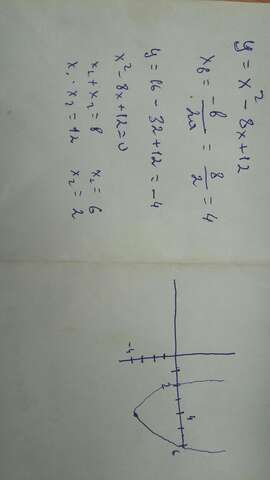 y = x² - 8x + 12
x_в = -в/2а = 8/2 = 4
y = 16 - 32 + 12 = -4
x² - 8x + 12 = 0
x₁ + x₂ = 8   x₁ = 6
x₁ · x₂ = 12   x₂ = 2
2 4 6
-4